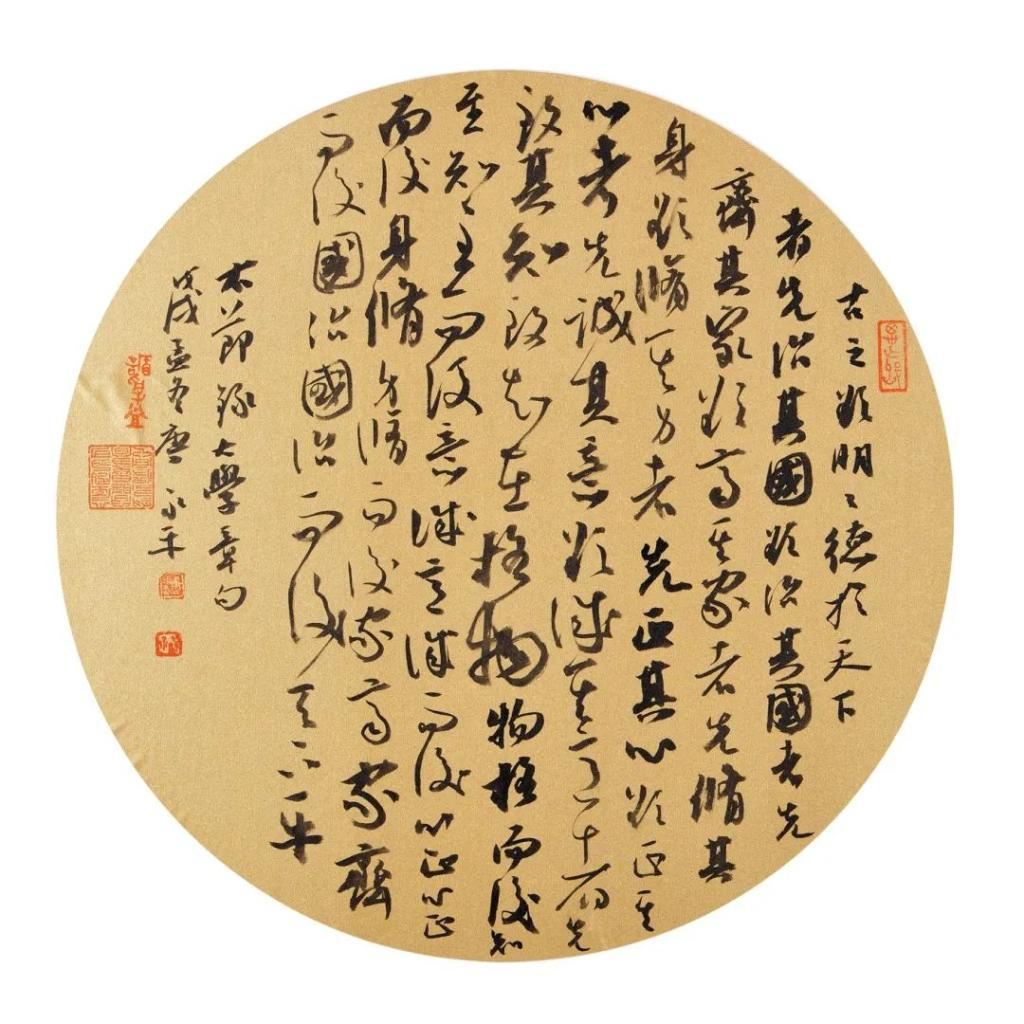 古之欲明々德於天下
者先治其國欲治其國者先
齊其家欲齊其家者先脩其
身欲脩其身者先正其心欲正其
心者先誠其意欲誠其先
致其知致知在格物物格而後知
至知々至而後意誠意誠而後心正心正
而後身脩身脩而後家齊家齊
而後國治國治而後天下平
右節錄大學章句
戊戌孟冬唐永平